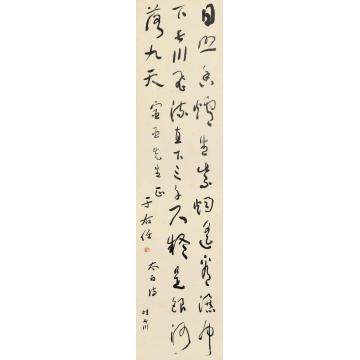 日照香爐生紫烟遙看瀑布
下長川飛流直下三千尺疑是銀河
落九天 先生正 于右任
太白詩 挂前川